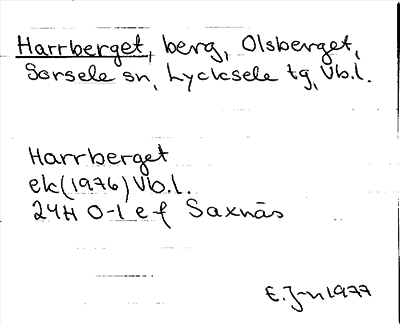 Harrberget, berg, Olsberget,
Sorsele sn, Lycksele tg, Vb.l.
Harrberget
ek(1976) Vb.l.
24H 0-1 e f Saxnäs
E.J-n 1977